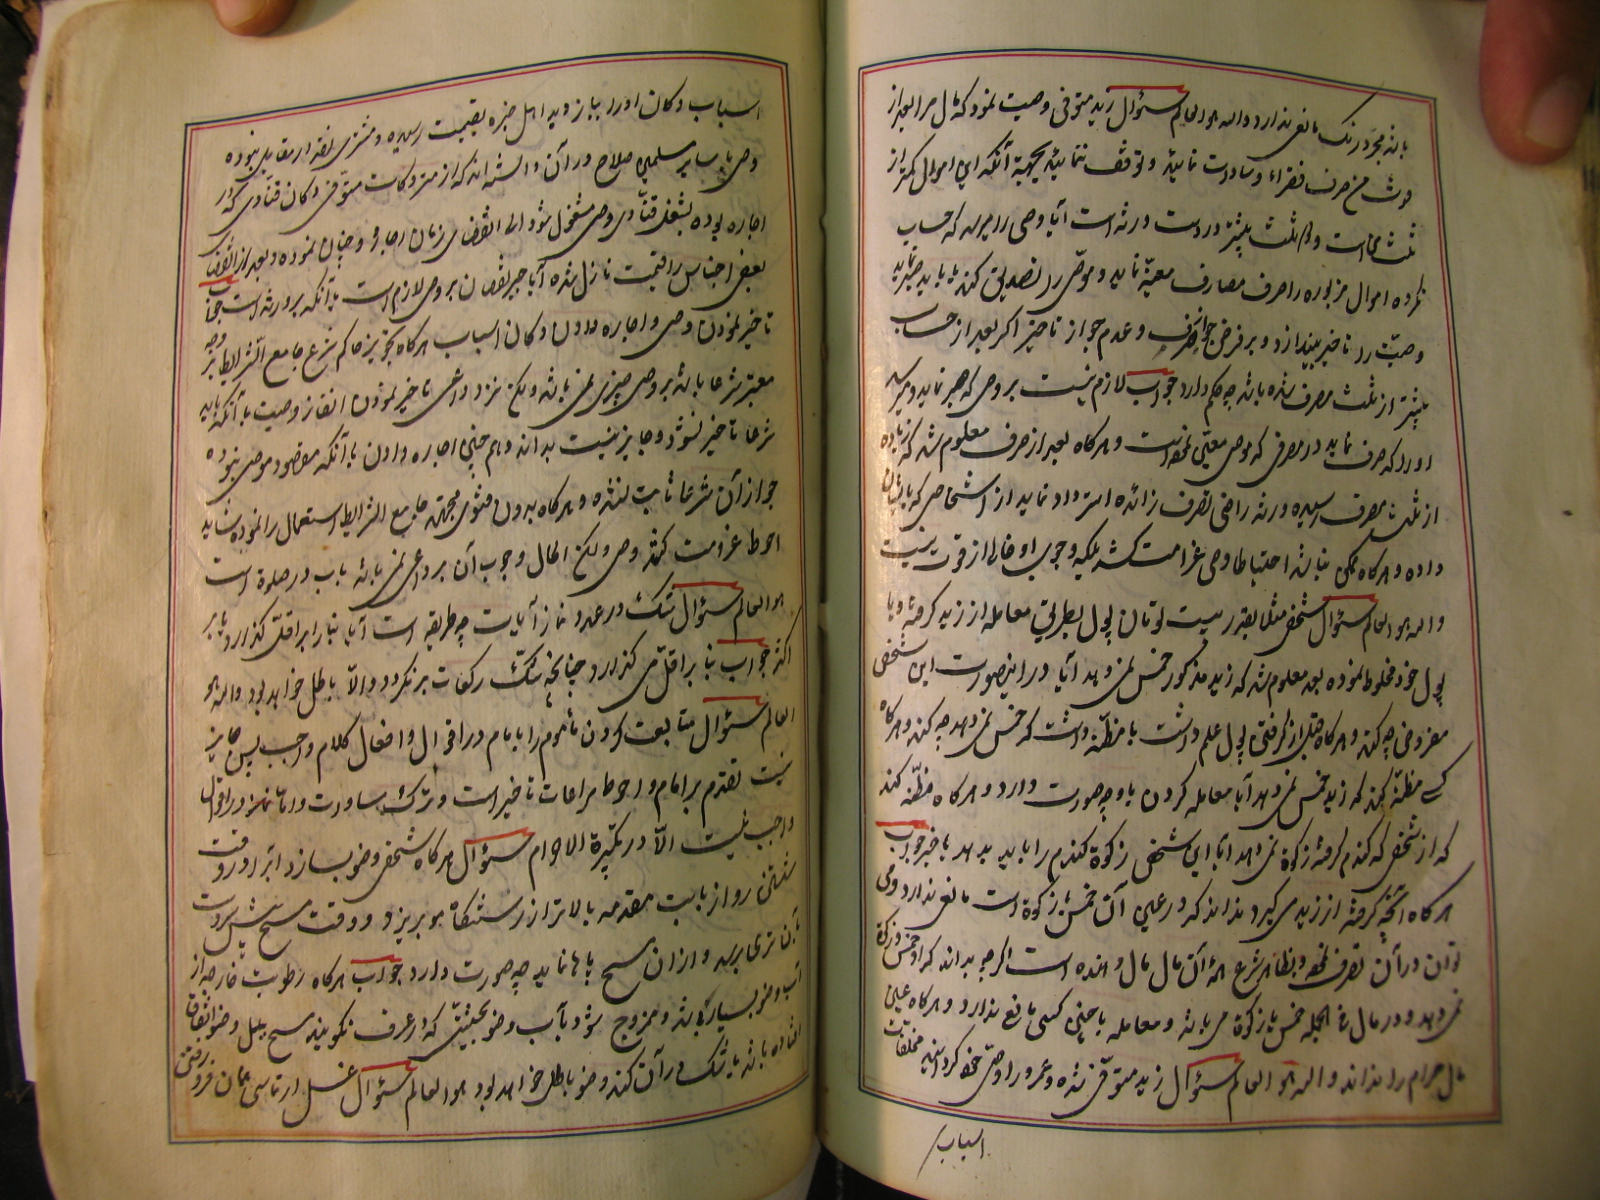 باشد مجرد رنگ مانعی ندارد والله هو العالم سؤال زید متوفی وصیت نمود که ثلث مرا بعد از
فوت من صرف فقراء و سادات نمایید و توقف ننمایید بجهة آنکه این اموال کمتر از
ثلث است ثلث بیشتر در دست ورثه است آیا وصی را میرسد که حساب
نکرده اموال مزبوره را صرف مصارف معینه نماید و موصی را تصدیق کند یا باید
وصیت را تاخیر بیندازد و بر فرض جواز صرف و عدم جواز تاخیر اگر بعد از حساب
بیشتر از ثلث صرف شده باشد چه حکم دارد جواب لازم نیست بر وصی که صبر نماید و میرسد
او را که صرف نماید در مصرفی که موصی معین نموده است و هرگاه بعد از صرف معلوم شد که زیاده
از ثلث بمصرف رسیده ورثه راضی بتصرف زائده استرداد نماید از اشخاصی که بایشان
داده و هرگاه ممکن نباشد احتیاطا وصی غرامت کشد بلکه وجوب او خالی از قوت نیست
والله هو العالم سؤال شخصی مثلا بقدر بیست تومان پول بطریق معامله از زید گرفته و با
پول خود مخلوط نموده بعد معلوم شد که زید مذکور خمس نمیدهد آیا در اینصورت این شخص
مفروض چه کند و هرگاه قبل از گرفتن پول علم داشت یا مظنه داشت که خمس نمی دهد چه کند و هرگاه
کسی مظنه کند که زید خمس نمی دهد آیا معامله کردن با او چه صورت دارد و هرگاه مظنه کند
که از شخصی که گندم گرفته زکوة نمی دهد آیا این شخص زکوة گندم را باید بدهد یا خیر جواب
هرگاه آنچه گرفته از زید می گیرد نداند که در عین آن خمس یا زکوة است مانعی ندارد و می
توان در آن تصرف نمود و بظاهر شرع همه آن مال مال دهنده است اگر چه بداند که او خمس و زکوة
نمی دهد و در مال فی الجمله خمس یا زکوة می باشد و معامله با چنین کسی مانع ندارد و هرگاه عین
مال حرام را نداند والله هو العالم سؤال زید متوفی شده و عمرو را وصی خود کرده
اسباب
اسباب دکان او را ببازدید اهل خبره بقیمت رسیده و مشتری نقد از مقابل نبوده
وصی با سایر مسلمین صلاح در آن دانسته اند که از متروکات متوفی دکان قنادی که در
اجاره بوده بشغل قنادی وصی مشغول شود الی انقضای زمان اجاره و چنان نموده و بعد از انقضا
بعض اجناس را قیمت نازل شده آیا جبر نقصان بر وصی لازم است یا آنکه بر ورثه است جواب
تاخیر نمودن وصی و اجاره دادن دکان اسباب هرگاه بتجویز حاکم شرع جامع الشرایط بر وجه
معتبر شرعا باشد بر وصی چیزی نمی باشد و لکن نزد داعی تاخیر نمودن انفاذ وصیت با آنکه باید
شرعا تاخیر نشود و جایز نیست بداند و هم چنین اجاره دادن با آنکه مقصود موصی نبوده
جواز آن شرعا ثابت نشده و هرگاه بدون فتوی مجتهد جامع الشرایط استعمال را نموده شاید
احوط غرامت کشد وصی و لکن الحال وجوب آن بر داعی نمی باشد باب در صلوة است
هو العالم سؤال شک در عدد نماز آیات چه طریقه است آیا بنا را بر اقل گذارد یا بر
اکثر جواب بنا بر اقل می گذارد چنانچه شک رکعات بر نگردد والا باطل خواهد بود والله هو
العالم سؤال متابعت کردن ماموم را بامام در اقوال و افعال کلام واجب پس جایز
نیست تقدم بر امام و احوط مراعات تاخیر است و ترک مساوات و اما در اقوال
واجب نیست الا در تکبیرة الاحرام سؤال هرگاه شخصی وضو بسازد ابرا در وقت
شستن رو از بابت مقدمه بالاتر از رستنگاه مو بریزد و وقت مسح پیش دست
بآن تری برسد و از آن مسح پاها نماید چه صورت دارد جواب هرگاه رطوبت خارجه از
آب وضو بسیار باشد و ممزوج شود بآب وضو بحیثیتی که در عرف نگویند مسح ببلل وضو اتفاق
افتاده باشد یا شک در آن کند وضو باطل خواهد بود هو العالم سؤال غسل ارتماسی همان فرو رفتن